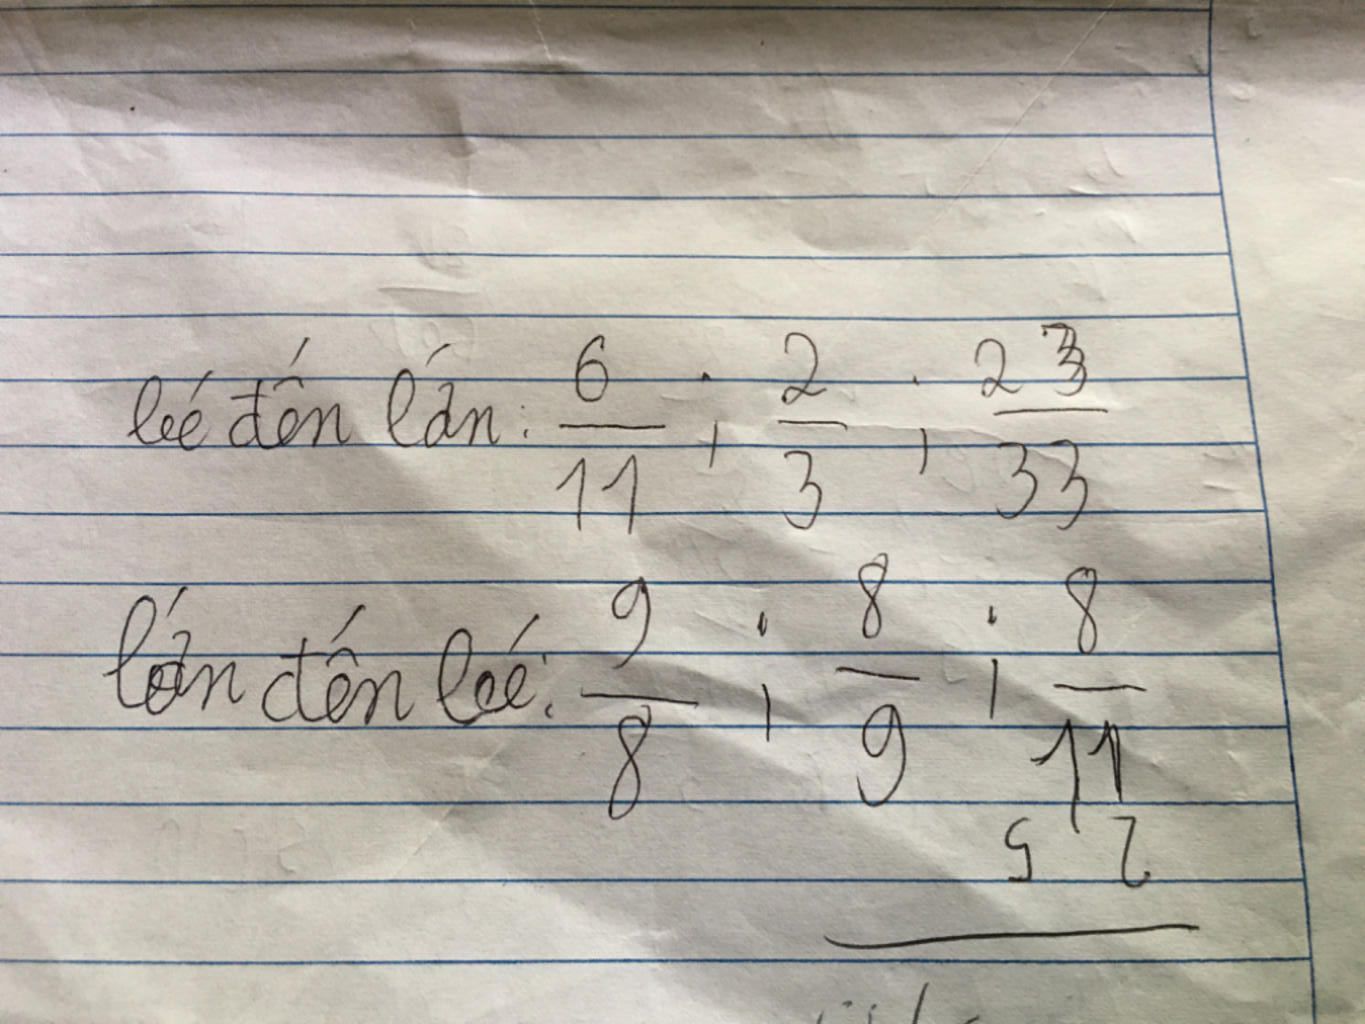 bé đến lớn: 6/11 ; 2/3 ; 23/33
lớn đến bé: 9/8 ; 8/9 ; 8/11
52